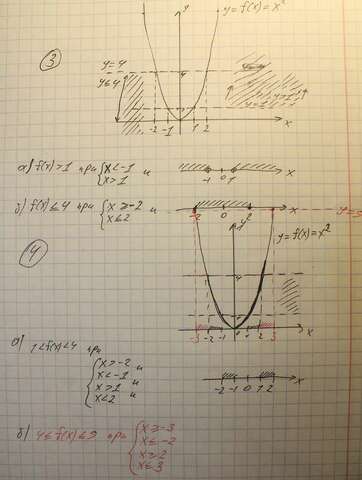 y = f(x) = x²
y
③
y=4
y≤4
4
y>1
y=1
1
-2 -1 1 2 x
а) f(x) > 1 при { x < -1 и
x > 1
-1 0 1 x
б) f(x) ≤ 4 при { x ≥ -2 и
x ≤ 2
-2 0 2 x
y=9
④
y = f(x) = x²
-3 -2 -1 1 2 3 x
а) 1 < f(x) < 4 при
{ x > -2 и
x < -1
x > 1 и
x < 2 и
-2 -1 0 1 2 x
б) 4 ≤ f(x) ≤ 9 при { x ≥ -3
x ≤ -2
x ≥ 2
x ≤ 3